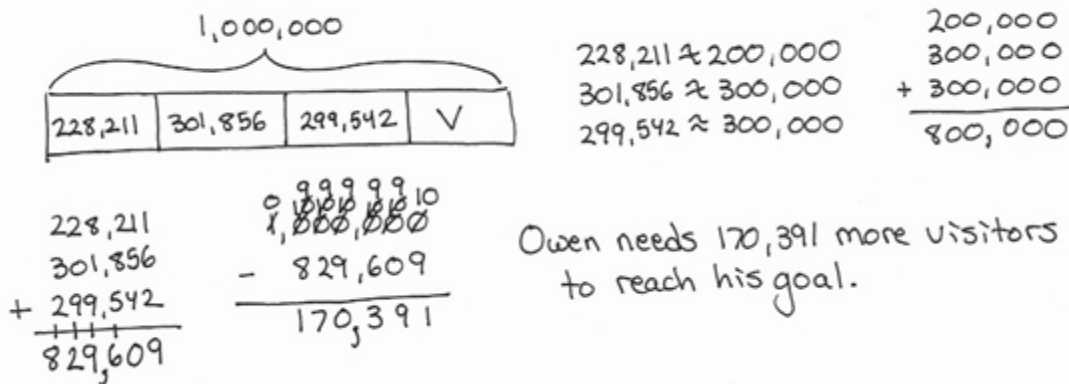 1,000,000
228,211 301,856 299,542 V
228,211 ≈ 200,000
301,856 ≈ 300,000
299,542 ≈ 300,000
200,000
300,000
+ 300,000
800,000
228,211
301,856
+ 299,542
829,609
0 9 9 9 9 9 10
10 10 10 10 10
1,000,000
- 829,609
170,391
Owen needs 170,391 more visitors
to reach his goal.